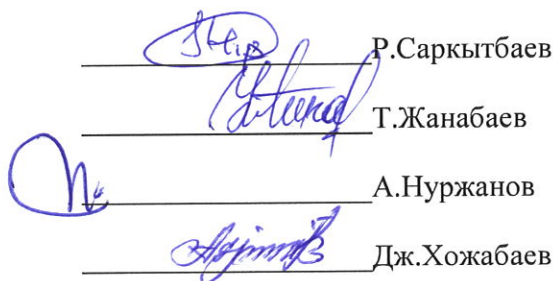 Р.Саркытбаев
Т.Жанабаев
А.Нуржанов
Дж.Хожабаев